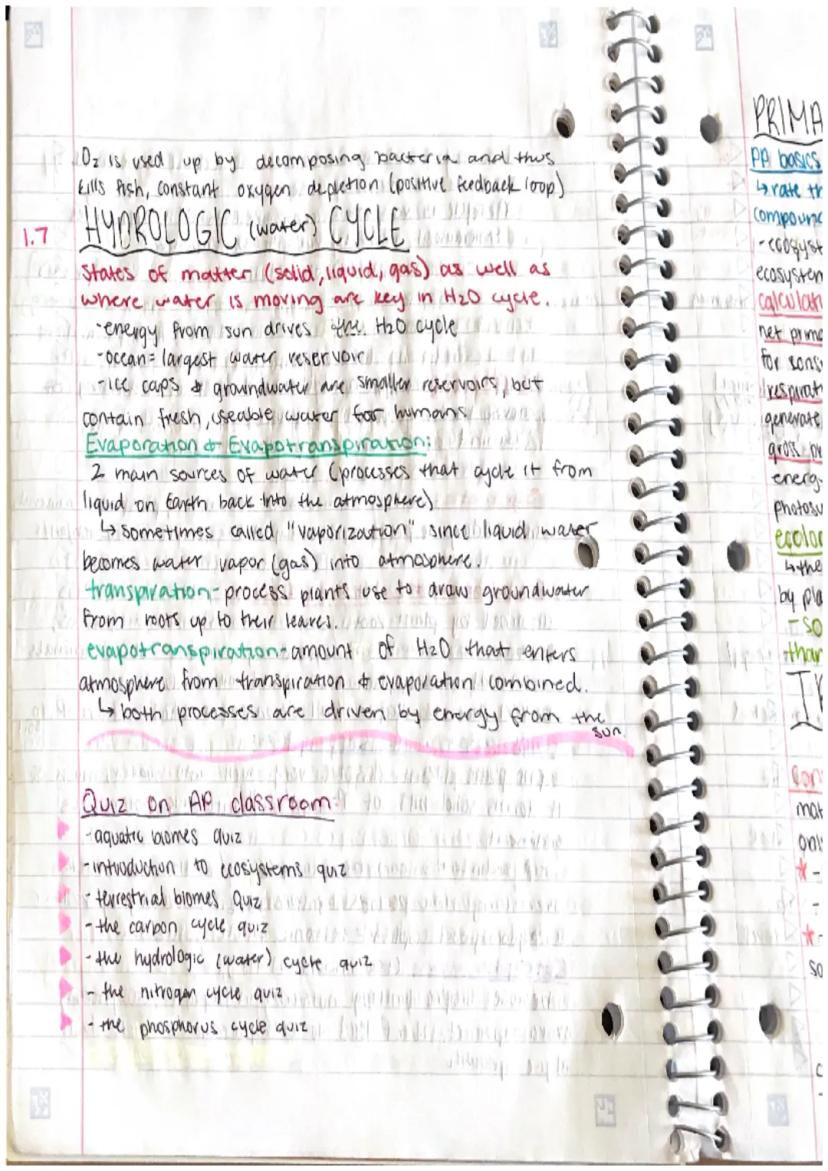 O2 is used up by decomposing bacteria and thus
kills fish, constant oxygen depletion (positive feedback loop)
1.7 HYDROLOGIC (water) CYCLE
States of matter (solid, liquid, gas) as well as
where water is moving are key in H2O cycle.
-energy from sun drives the H2O cycle
-ocean= largest water reservoir
-ice caps & groundwater are smaller reservoirs, but
contain fresh, useable water for humans
Evaporation & Evapotranspiration:
2 main sources of water (processes that cycle it from
liquid on Earth back into the atmosphere)
↳ sometimes called "vaporization" since liquid water
becomes water vapor (gas) into atmosphere.
transpiration- process plants use to draw groundwater
from roots up to their leaves.
evapotranspiration- amount of H2O that enters
atmosphere from transpiration & evaporation combined.
↳ both processes are driven by energy from the
sun
Quiz on AP classroom:
-aquatic biomes quiz
-introduction to ecosystems quiz
-terrestrial biomes quiz
-the carbon cycle quiz
-the hydrologic (water) cycle quiz
-the nitrogen cycle quiz
-the phosphorus cycle quiz
PRIMA
PP basics
↳ rate th
compound
-ecosyst
ecosystem
calculati
net prima
for cons
respirat
generate
gross pr
energ
photosy
ecolog
↳ the
by pla
-so
than
mat
only
*-
-
*-
so